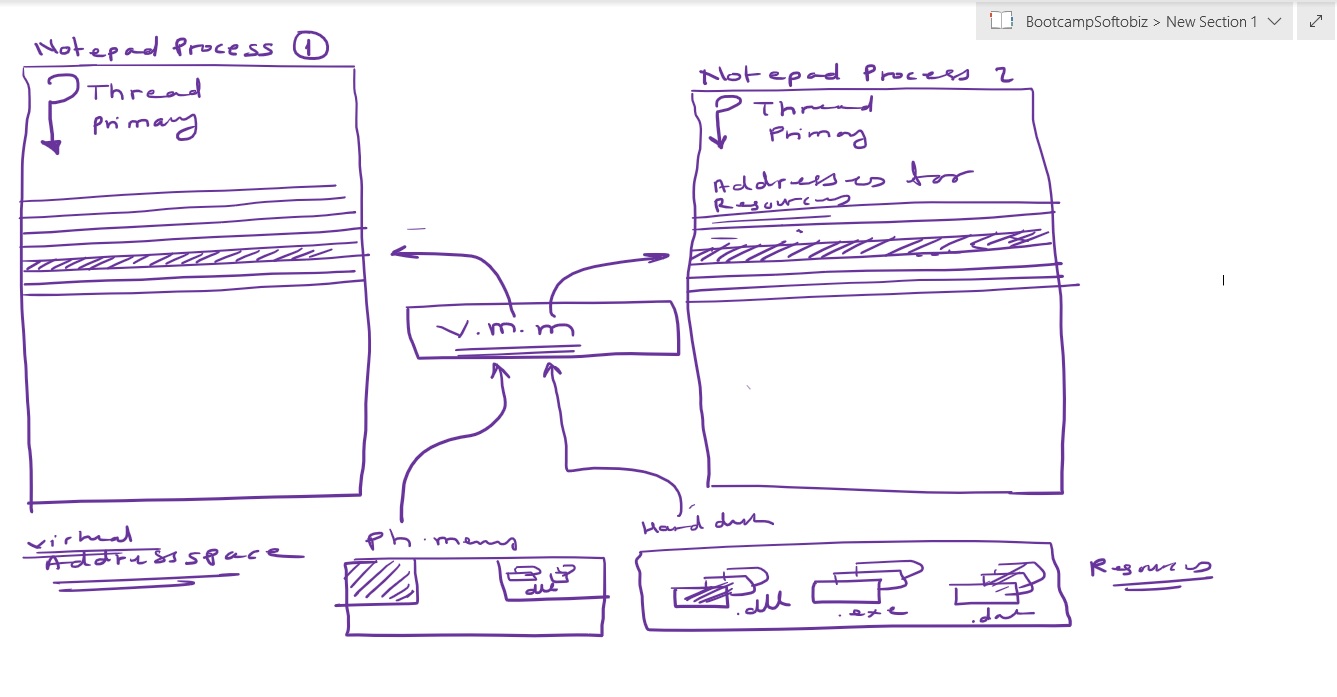 BootcampSoftobiz > New Section 1
Notepad Process 1
Thread
Primary
Notepad Process 2
Thread
Primary
Addresses for
Resources
V.m.m
Virtual
Address space
Ph. memy
Hard disk
Resources
dll
.dll
.exe
.dat